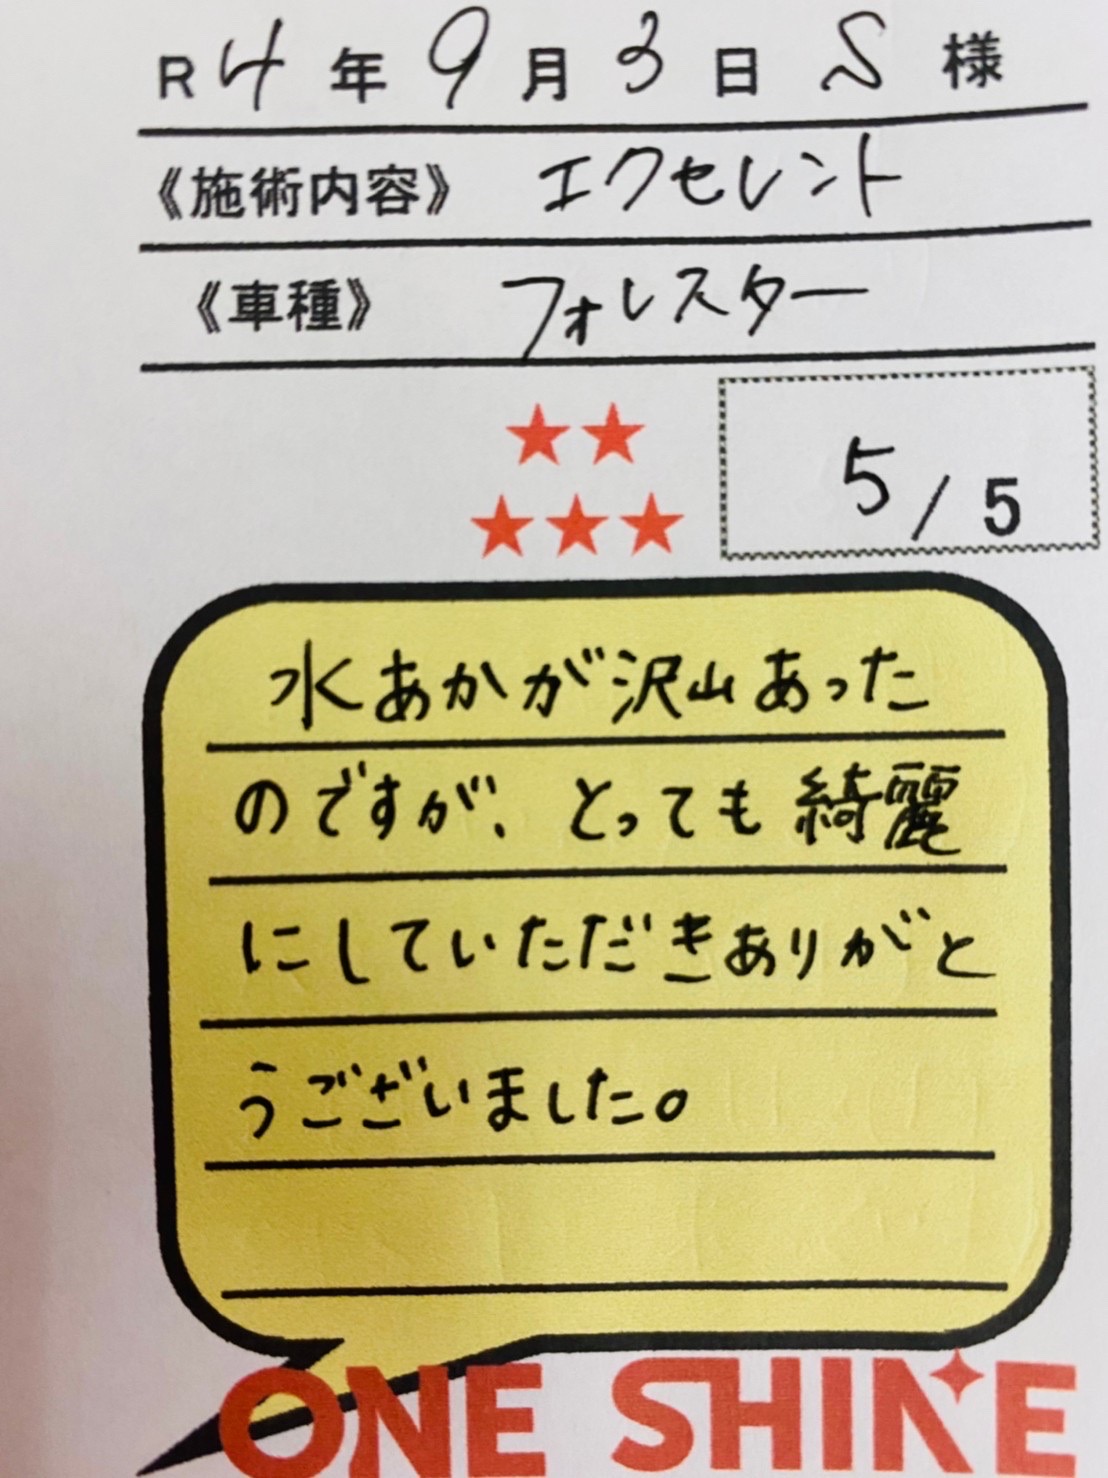 R4年9月3日 S様
《施術内容》 エクセレント
《車種》 フォレスター
★★
★★★
5/5
水あかが沢山あった
のですが、とっても綺麗
にしていただきありがと
うございました。
ONE SHINE